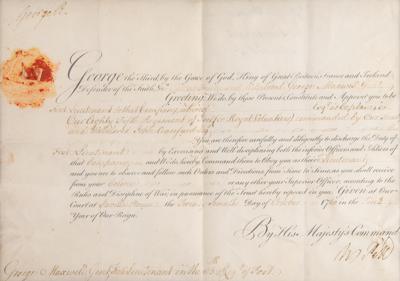 George R
George the Third, by the Grace of God, King of Great Britain, France and Ireland
Defender of the Faith, &c. To Our Trusty and Welbeloved George Maxwell Gent
Greeting: We do by these Presents, Constitute and Appoint you to be
First Lieutenant to that Company whereof Esq. is Captain in
Our Eighty Fifth Regiment of Foot (or Royal Volunteers) commanded by Our Trusty
and Welbeloved John Craufurd Esq. You are therefore carefully and diligently to discharge the Duty of
First Lieutenant by Exercising and Well disciplining both the inferior Officers and Soldiers of
that Company and We do hereby Command them to Obey you as their Lieutenant
and you are to observe and follow such Orders and Directions from Time to Time, as you shall receive
from your Colonel or any other your Superior Officer, according to the
Rules and Discipline of War, in pursuance of the Trust hereby reposed in you. Given at Our
Court at Saint James's the Day of October 176 in the
Year of Our Reign.
By His Majesty's Command
W Pitt
George Maxwell Gent Lieutenant in the 85 Regt. of Foot